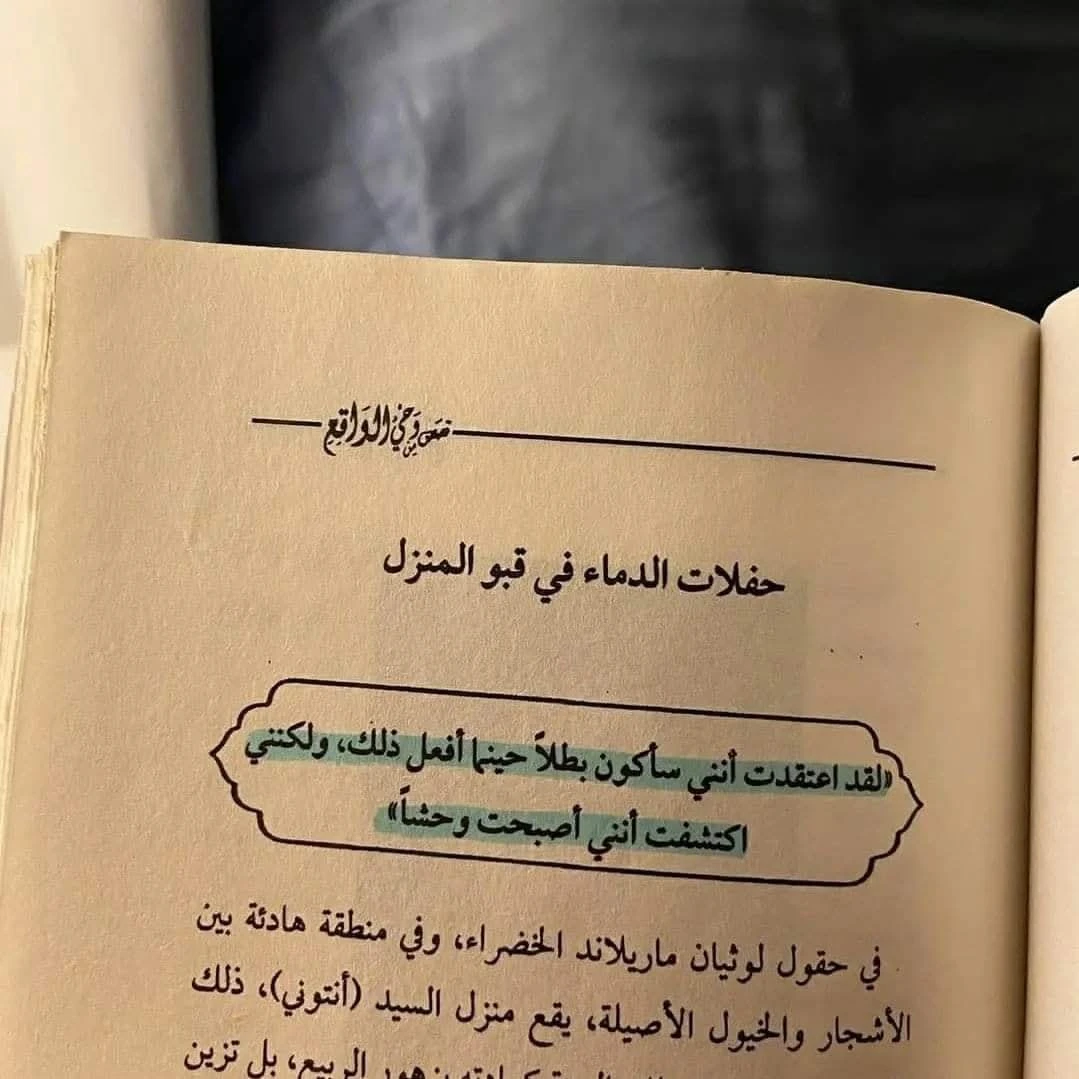 قصص من وحي الواقع
حفلات الدماء في قبو المنزل
«لقد اعتقدت أنني سأكون بطلاً حينما أفعل ذلك، ولكنني
اكتشفت أنني أصبحت وحشاً»
في حقول لوثيان ماريلاند الخضراء، وفي منطقة هادئة بين
الأشجار والخيول الأصيلة، يقع منزل السيد (أنتوني)، ذلك
بزهور الربيع، بل تزين